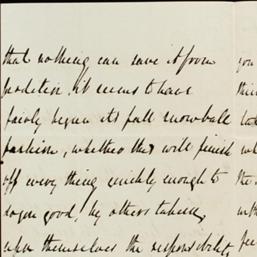 that nothing can save it from
perdition. it seems to have
fairly begun its fall snowball
fashion, whether they will finish
off every thing quickly enough to
do you good! by others taking
upon themselves the responsibility
you